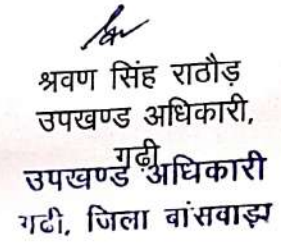 श्रवण सिंह राठौड़
उपखण्ड अधिकारी,
गढ़ी
उपखण्ड अधिकारी
गढी, जिला बांसवाड़ा